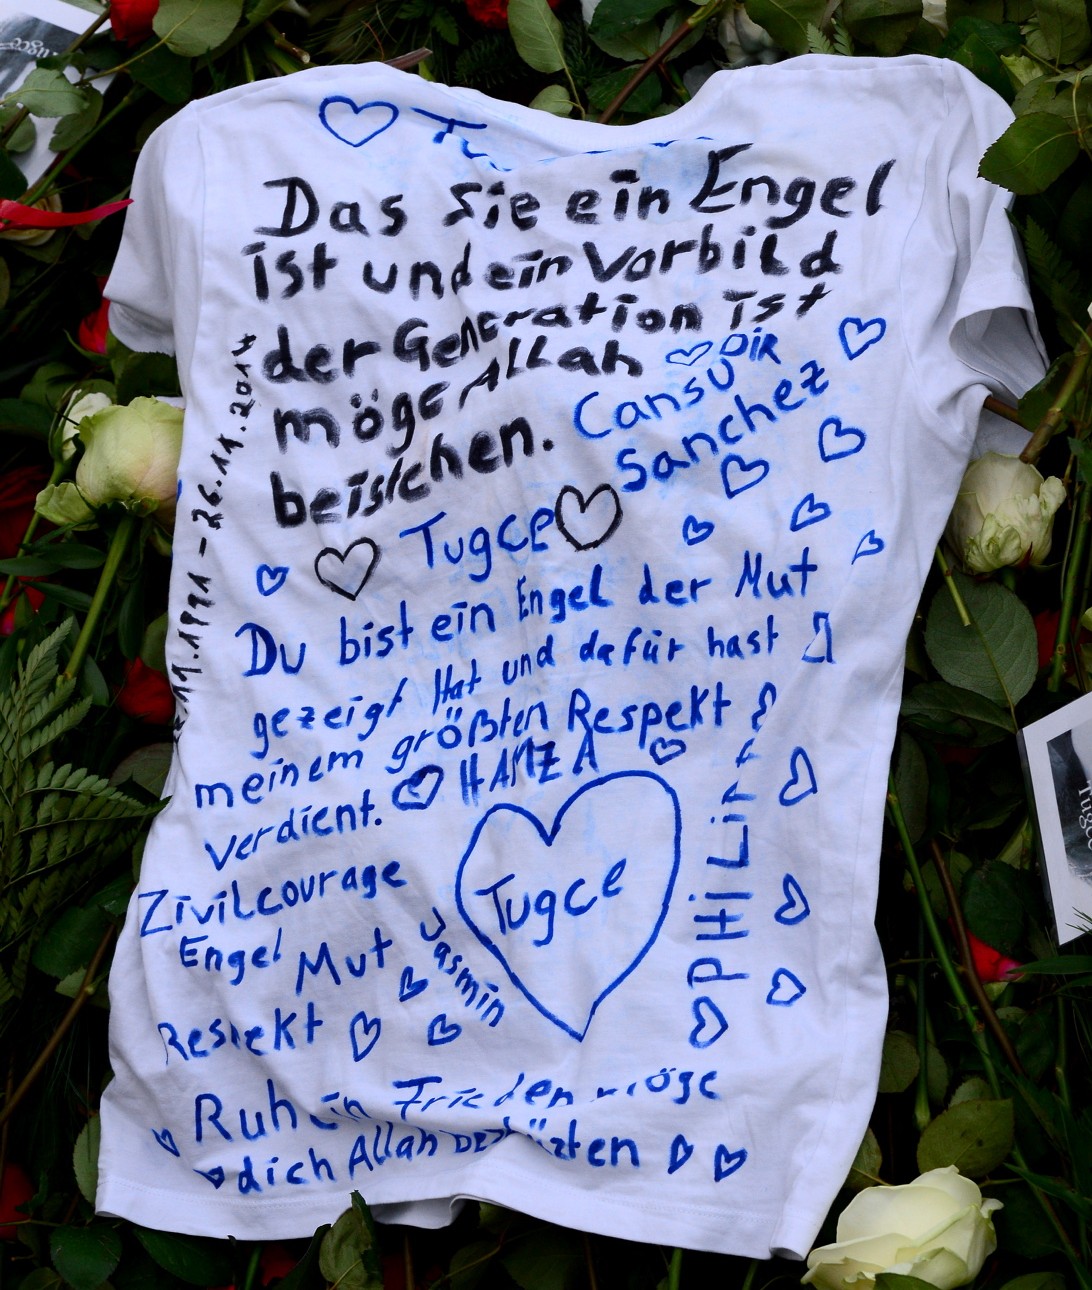 Das Sie ein Engel
ist und ein Vorbild
der Generation ist
möge Allah
beislchen.
DIR
Cansu
Sanchez
Tugce
Du bist ein Engel der Mut
gezeigt Hat und dafür hast
meinem größten Respekt
verdient.
HAMZA
Zivilcourage
Engel Mut
Respekt
Jasmin
Tugce
Ruh in Frieden möge
dich Allah
11.1991 - 26.11.2014
Tugce